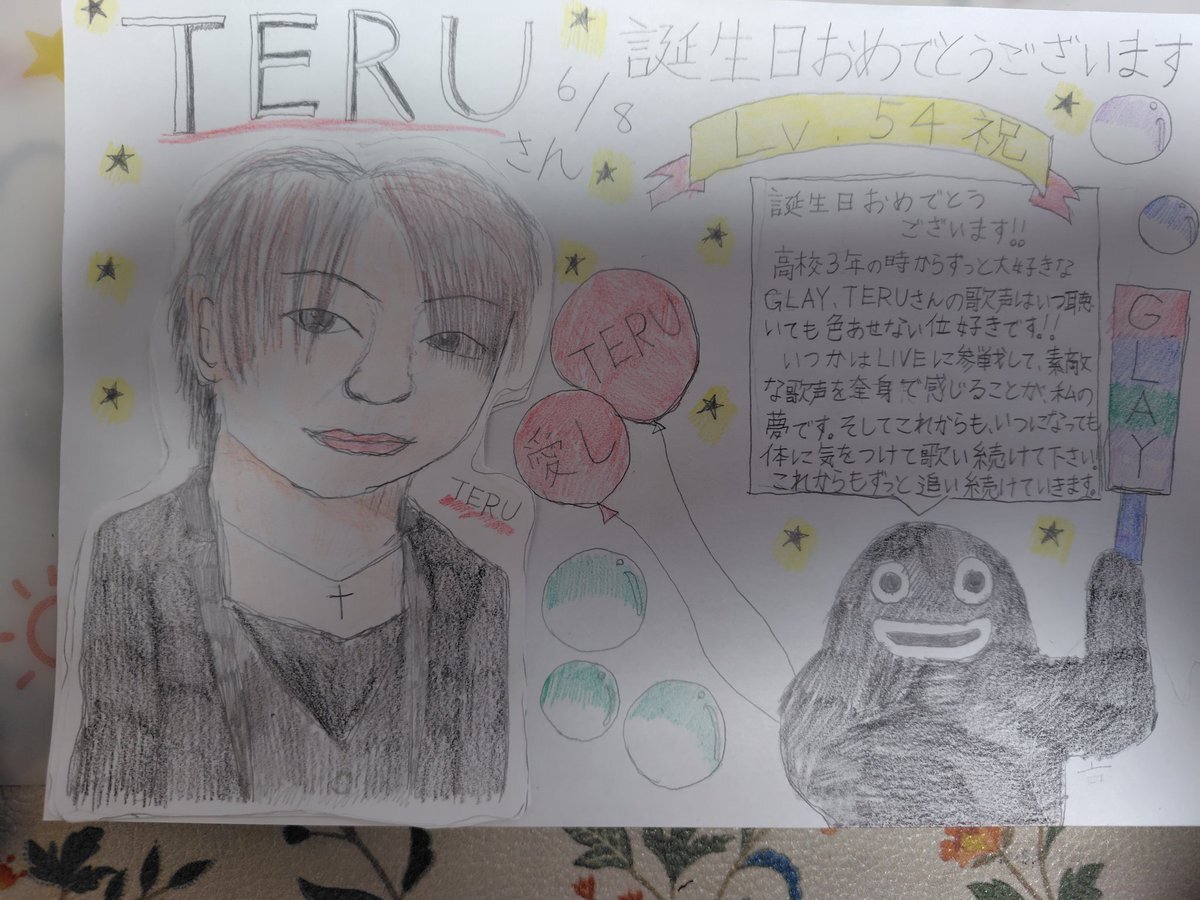 TERU
さん
6/8
誕生日おめでとうございます
Lv.54祝
誕生日おめでとう
ございます!!
高校3年の時からずっと大好きな
GLAY、TERUさんの歌声はいつ聴
いても色あせない位好きです!!
いつかはLIVEに参戦して、素敵
な歌声を全身で感じることが、私の
夢です。そしてこれからも、いつになっても
体に気をつけて歌い続けて下さい!
これからもずっと追い続けていきます。
TERU
愛し
TERU
GLAY